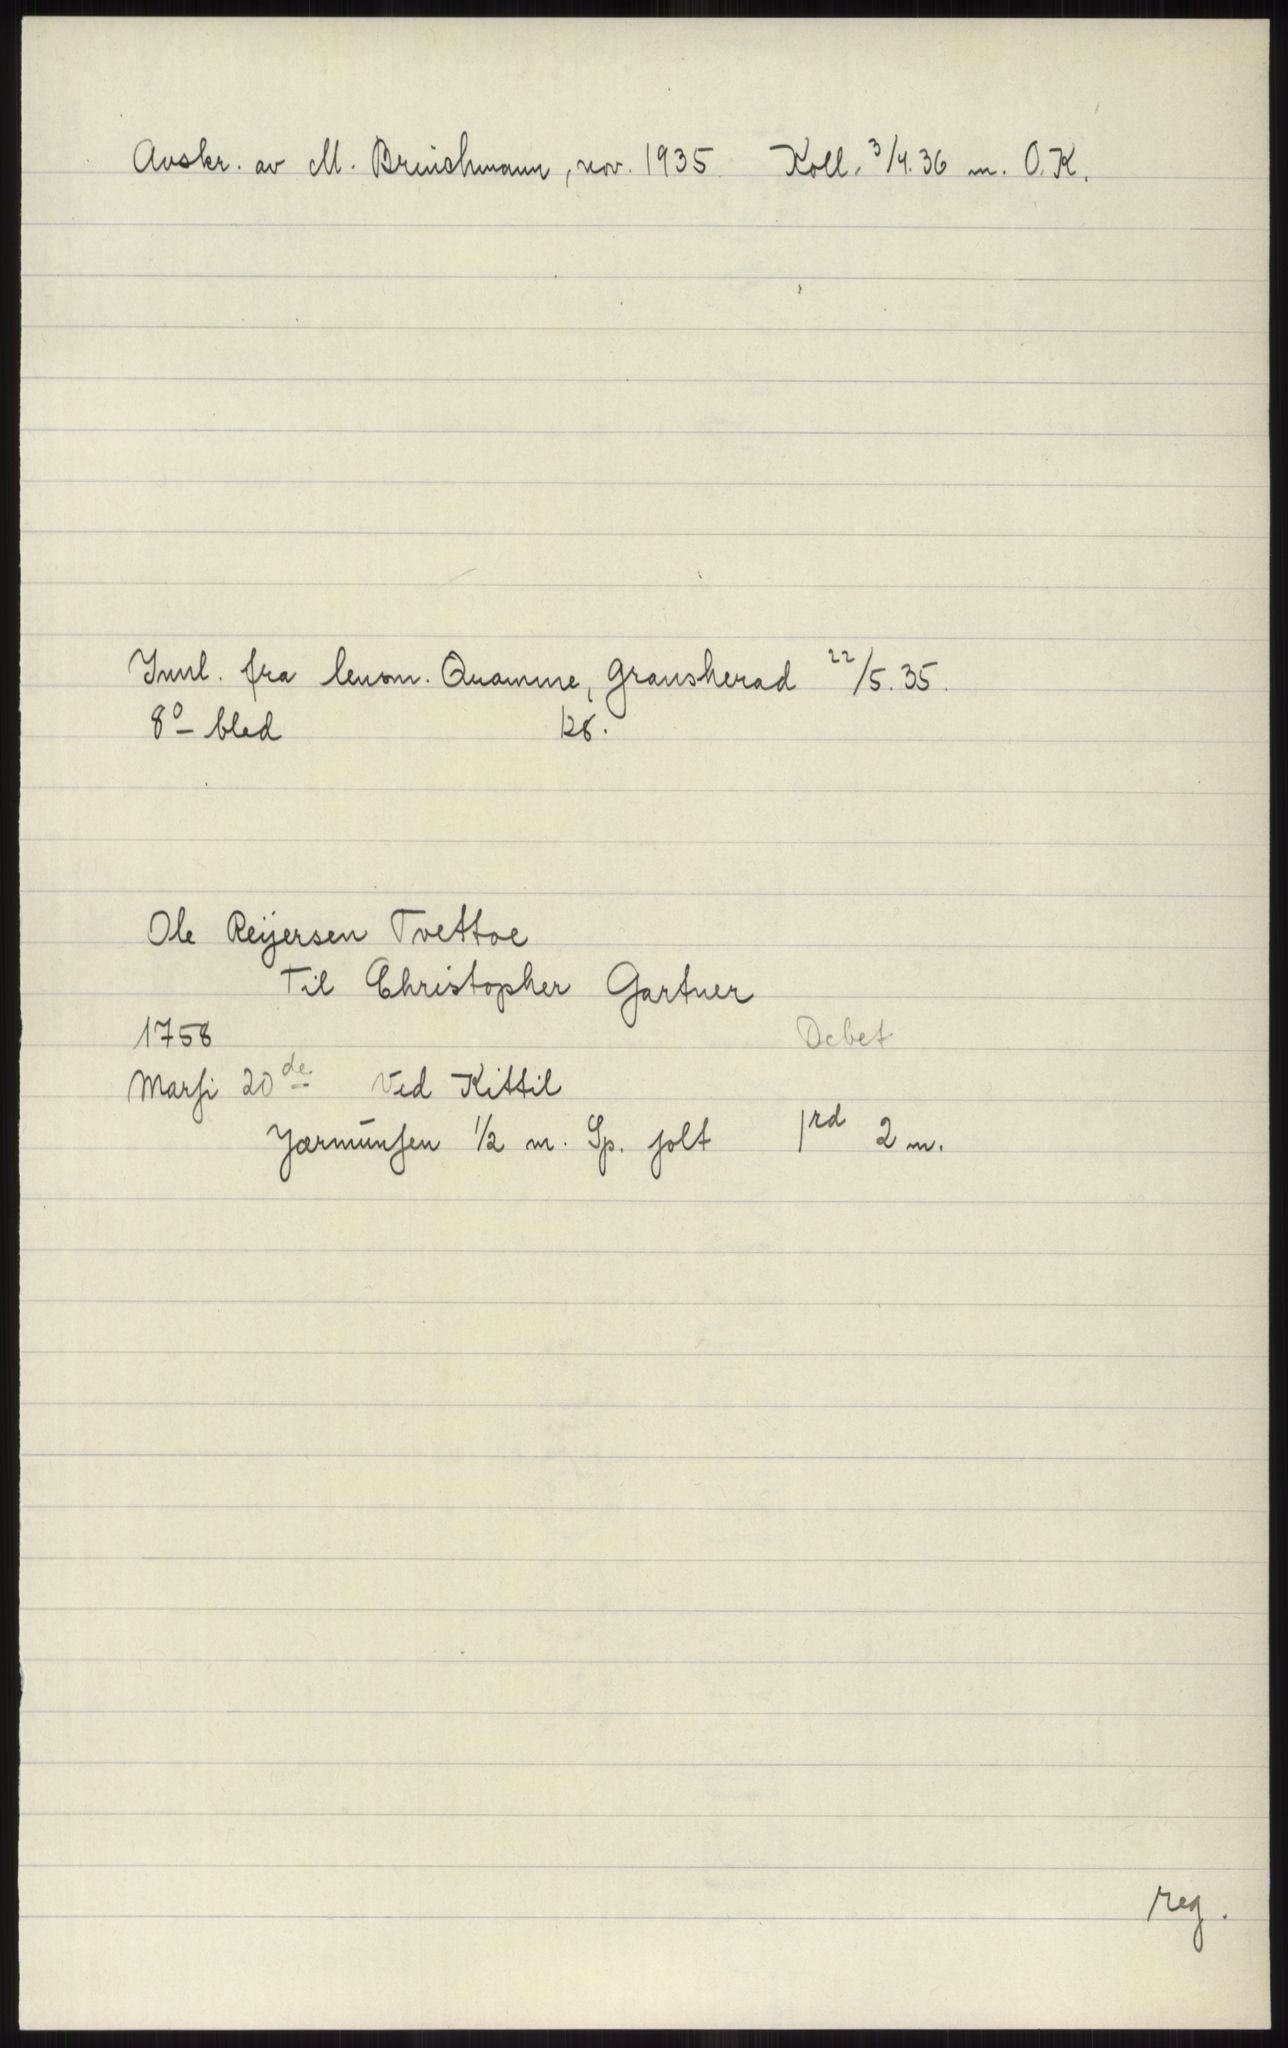 Avskr. av M. Brinchmann, nov. 1935 Koll. 3/4.36 m. O.K.
Innl. fra lensm. Quamme, Gransherad 22/5.35.
8º- bled 126.
Ole Reijersen Tvettoe
Til Christopher Gartner
1758 Debet
Marsi 20de Ved Kittil
Jærmunsen 1/2 m. Sp. solt 1rd 2 m.
reg.